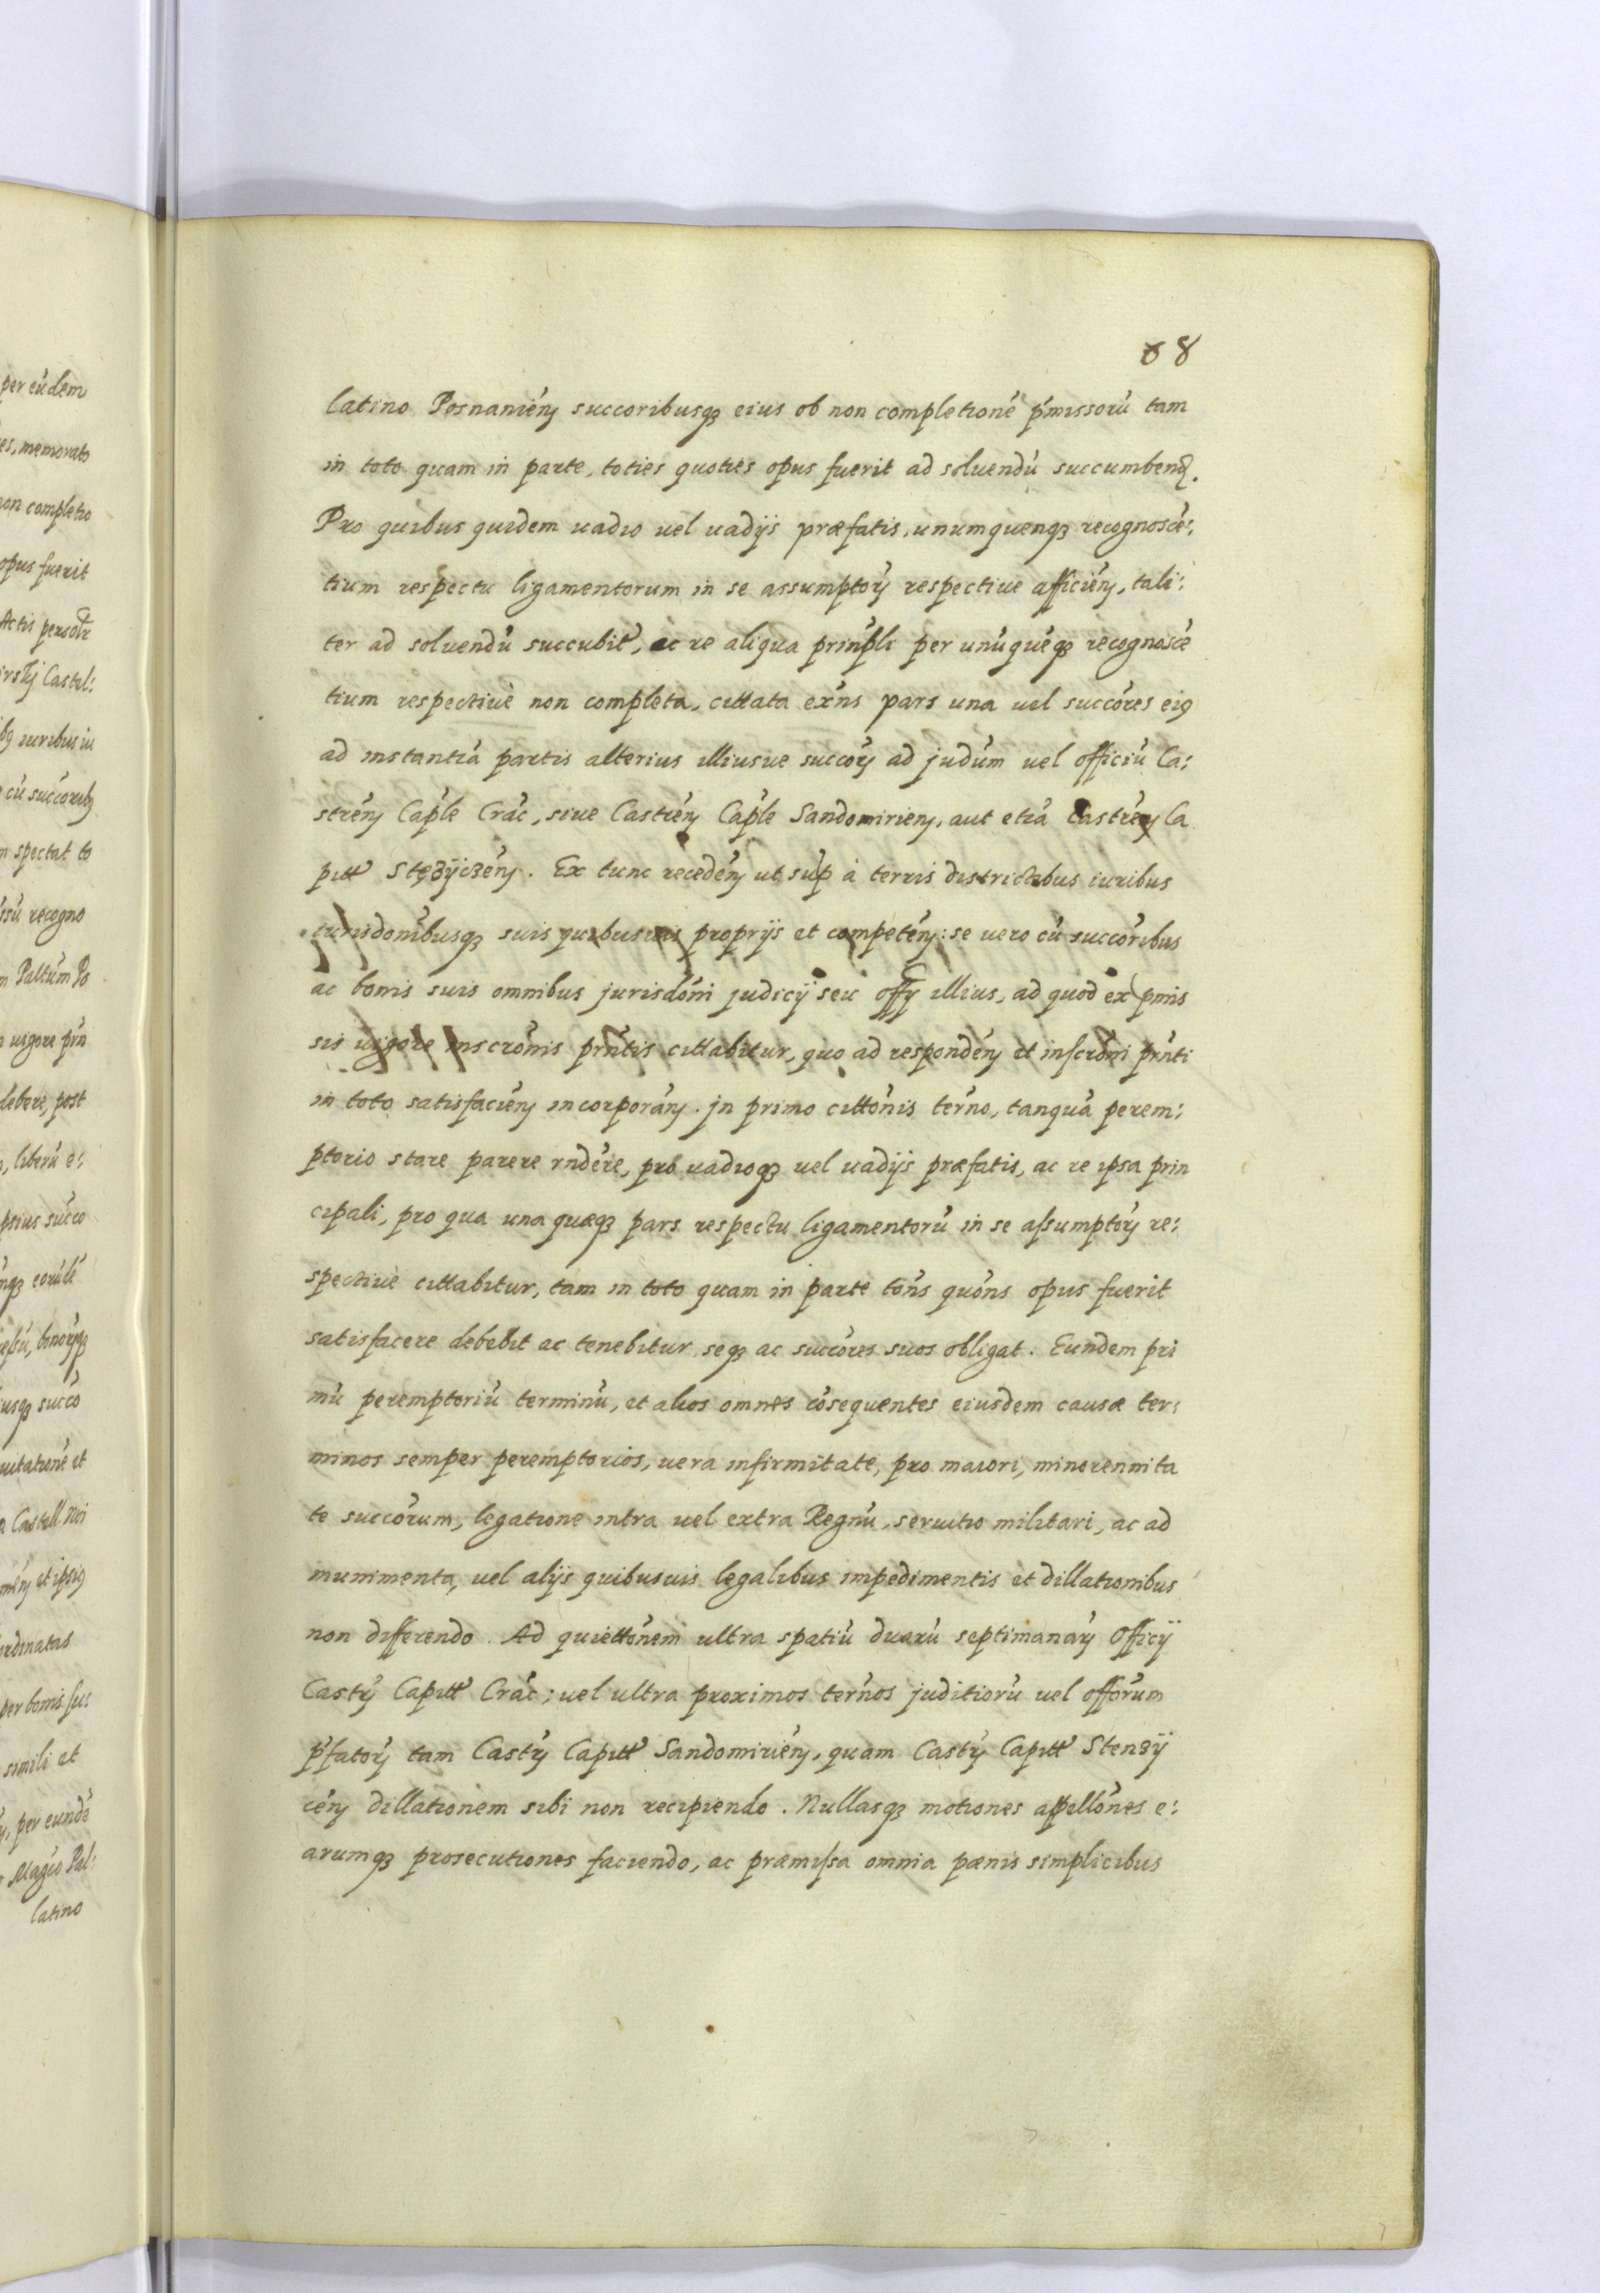 per eúdem
es, memorato
non completio
opus fuerit
Actis
Castel:
iuribus iu
cú succorib
m spectat to
ssú recogno
m Paltúm Po
vigore prn
debere, post
, liberú e:
psius succo
succo
uitatione et
Castell
et ipsiꝯ
ordinatas
per bonis su:
simili et
, per eundé
Magco Pal:
latino
68
latino Posnanién succoribusqꝫ eius ob non completioné pʹmissorú tam
in toto quam in parte, toties quoties opus fuerit ad soluendú succumbend.
Pro quibus quidem uadio uel uadijs præfatis, unumquenqꝫ recognoscé:
tium respectu ligamentorum in se assumptorʹ respectiue afficién, tali:
ter ad soluendú succubit, ac re aliqua prinpli per unúquéqꝫ recognoscé
tium respectiuè non completa, cittata exns pars una uel succóres eiꝯ
ad instantiá partis alterius illiusue succorʹ ad judúm uel officiú Ca:
strén Caple Crác, siue Castrén Caple Sandomirien, aut etiá Castrén Ca
pitt Stęzÿczén. Ex tunc recedén ut sup à terris districtibus iuribus
iurisdonibusqꝫ suis quibusuis proprijs et competén: se uero cú succóribus
ac bonis suis omnibus jurisdóni judicÿ seu offʹ illius, ad quod ex pmis
sis uigore inscrónis prntis cittabitur, quo ad respondén et inscróni prnti
in toto satisfacién incorporán. Jn primo cittónis térno, tanquá perem:
ptorio stare parere rndére, pro uadioqꝫ uel uadijs præfatis, ac re ipsa prin
cipali, pro qua una quæqꝫ pars respectu ligamentorú in se assumptorʹ re:
spectiuè cittabitur, tam in toto quam in parte tóns quóns opus fuerit
satisfacere debebit ac tenebitur seqꝫ ac succóres suos obligat. Eundem pri
mú peremptoriú terminú, et alios omnes cósequentes eiusdem causæ ter:
minos semper peremptorios, uera infirmitate, pro maiori, minorennita
te succórum, legatione intra uel extra Regnú, seruitio militari, ac ad
munimenta, uel alijs quibusuis legalibus impedimentis et dillationibus
non differendo. Ad quiettónem ultra spatiú duarú septimanarʹ Officÿ
Castrʹ Capitt Crác; uel ultra proximos térnos juditiorú uel offórum
pʹfatorʹ tam Castrʹ Capitt Sandomirién, quam Castrʹ Capitt Stenzÿ
cén dillationem sibi non recipiendo. Nullasqꝫ motiones appellónes e:
arumqꝫ prosecutiones faciendo, ac præmissa omnia pænis simplicibus